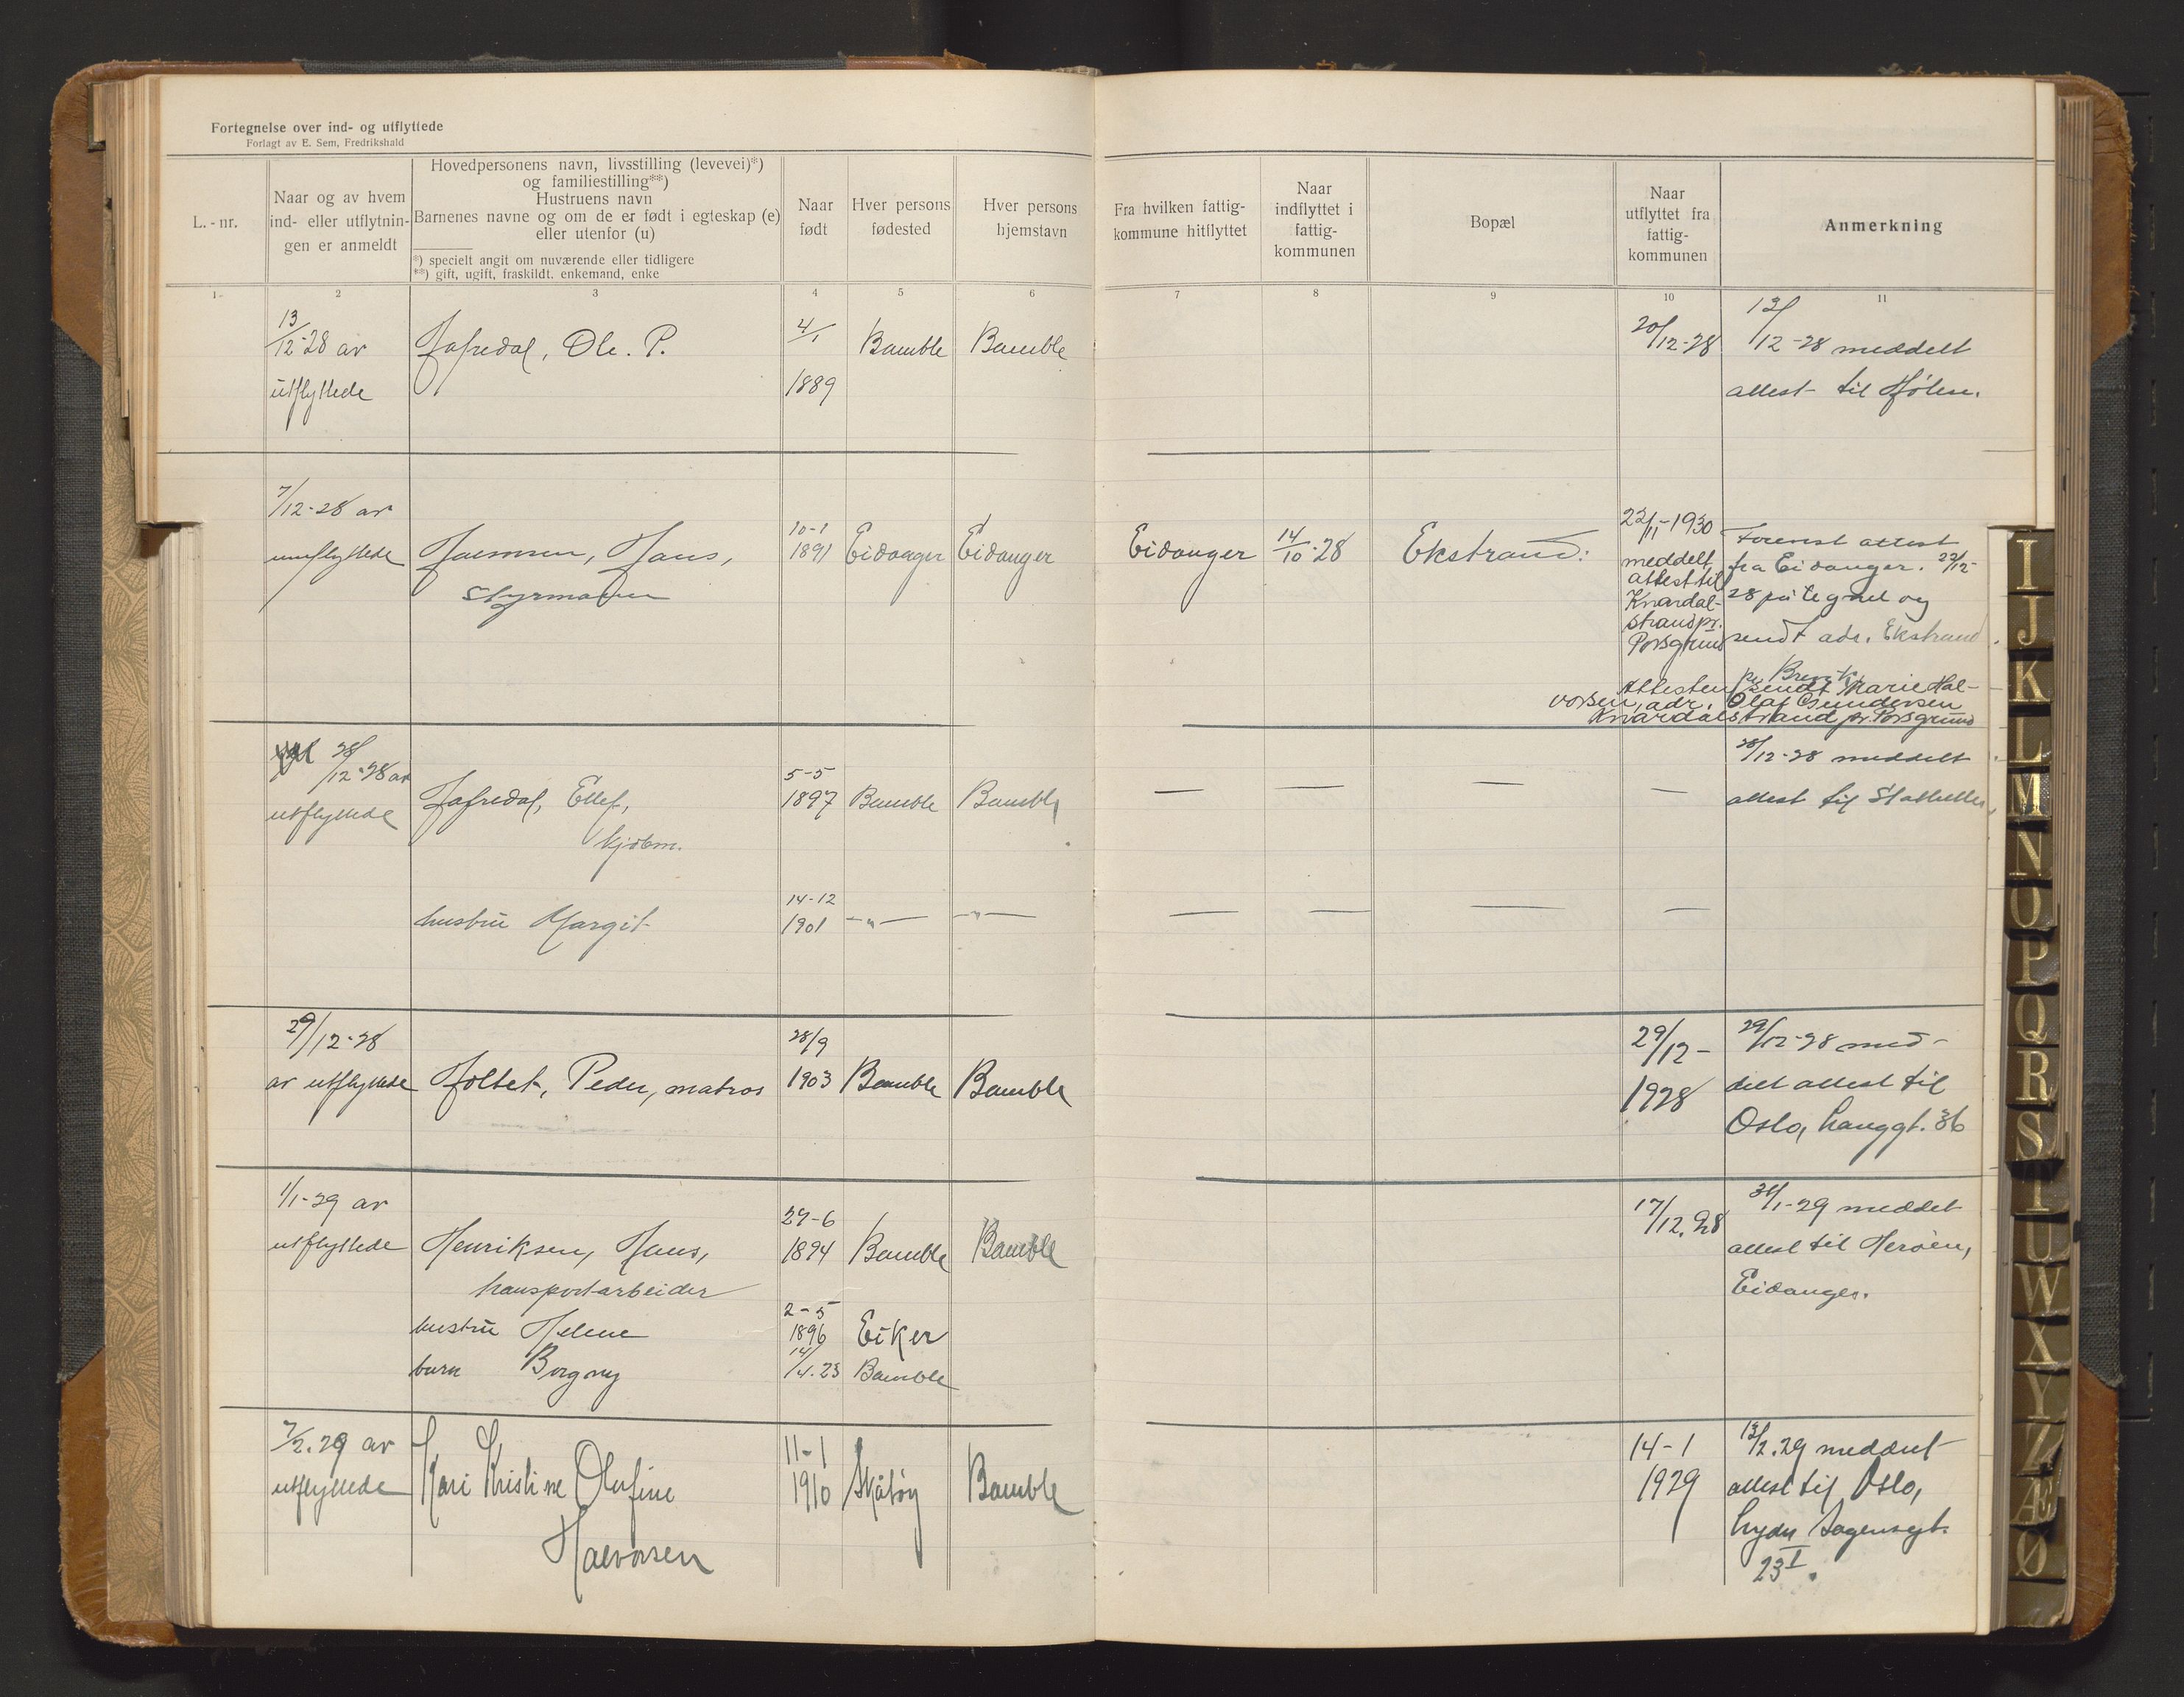 Fortegnelse over ind- og utflyttede
Forlagt av E. Sem, Fredrikshald
L.-nr.
Naar og av hvem
ind- eller utflytnin-
gen er anmeldt
Hovedpersonens navn, livsstilling (levevei)*)
og familiestilling**)
Hustruens navn
Barnenes navne og om de er født i egteskap (e)
eller utenfor (u)
*) specielt angit om nuværende eller tidligere
**) gift, ugift, fraskildt. enkemand, enke
Naar
født
Hver persons
fødested
Hver persons
hjemstavn
Fra hvilken fattig-
kommune hitflyttet
Naar
indflyttet i
fattig-
kommunen
Bopæl
Naar
utflyttet fra
fattig-
kommunen
Anmerkning
1
2
3
4
5
6
7
8
9
10
11
13/12-28 av
utflyttede
Hafredal, Ole. P.
4/1
1889
Bamble
Bamble
20/12-28
12/12-28 meddelt
attest til
7/12-28 av
Hans,
Styrmann
10-1
1891
Eidanger
Eidanger
Eidanger
14/10-28
Ekstrand:
22/11-1930
meddelt
attest til
Knardal-
strand pr.
Porsgrund
Forevist attest
fra Eidanger. 22/12-
28 påtegnet og
sendt adr. Ekstrand
pr. Brevik.
Attesten sendt Marie Hal-
vorsen, adr. Olaf Gundersen
Knardalstrand pr. Porsgrund
28/12-28 av
utflyttede
Hafredal, Ellef,
kjøbm.
5-5
1897
Bamble
Bamble
—
—
—
—
28/12-28 meddelt
attest til Stathelle,
hustru Margit
14-12
1901
—"—
—"—
—
—
—
—
29/12-28
av utflyttede
Holtet, Peder, matros
28/9
1903
Bamble
Bamble
29/12-
1928
29/12-28 med-
delt attest til
Oslo, Langgt. 36
1/1-29 av
utflyttede
Henriksen, Hans,
transportarbeider
27-6
1894
Bamble
Bamble
17/12.28
31/1-29 meddelt
attest til Herøen,
Eidanger.
hustru Helene
2-5
1896
Eiker
barn Borgny
14/4.23
Bamble
7/2.29 av
utflyttede
Kari Kristine Olufine
Halvorsen
11-1
1910
Skåtøy
Bamble
14-1
1929
13/2.29 meddelt
attest til Oslo,
Lyder Sagensgt.
23 I.
I
J
K
L
M
N
O
P
Q
R
S
T
U
W
X
Y
Z
Æ
Ø